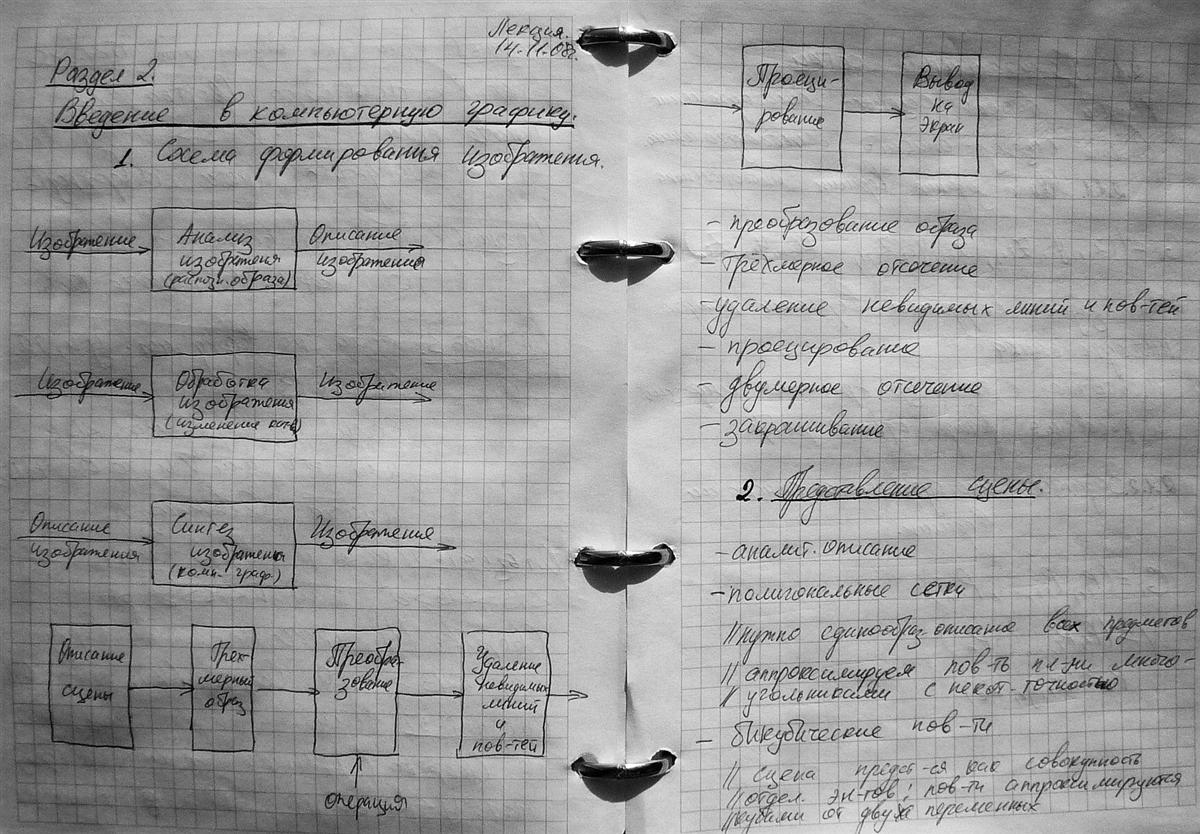 Лекция.
14.11.08г.
Раздел 2.
Введение в компьютерную графику.
1. Схема формирования изображения.
Изображение
Анализ
изображения
(распозн. образа)
Описание
изображения
Изображение
Обработка
изображения
(изменение кач-ва)
Изображение
Описание
изображения
Синтез
изображения
(комп. граф.)
Изображение
Описание
сцены
Трех-
мерный
образ
Преобра-
зование
операция
Удаление
невидимых
линий
и
пов-тей
Проеци-
рование
Вывод
на
экран
- преобразование образа
- трёхмерное отсечение
- удаление невидимых линий и пов-тей
- проецирование
- двумерное отсечение
- закрашивание
2. Представление сцены.
- аналит. описание
- полигональные сетки
// нужно единообраз. описание всех предметов
// аппроксимируем пов-ть пл-ми много-
// угольниками с некот. точностью
- бикубические пов-ти
// сцена предст-ся как совокупность
// отдел. эл-тов; пов-ти аппроксимируются
// кубами от двух переменных